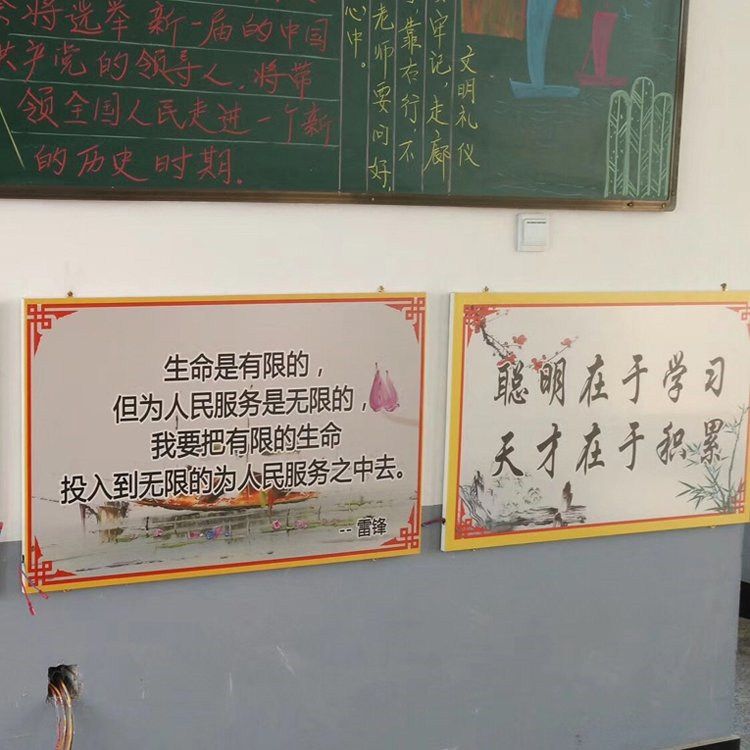 会将选举新一届的中国
共产党的领导人，将带
领全国人民走进一个新
的历史时期。
文明礼仪
牢记，走廊
靠右行，不
老师要问好
心中。
生命是有限的，
但为人民服务是无限的，
我要把有限的生命
投入到无限的为人民服务之中去。
-- 雷锋
聪明在于学习
天才在于积累